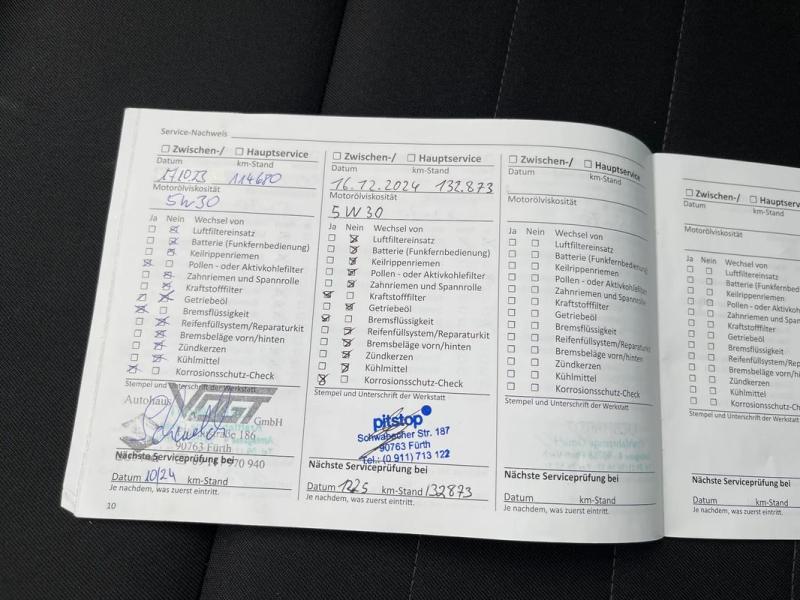 Service-Nachweis
☐ Zwischen-/ ☐ Hauptservice
Datum km-Stand
171023 114680
Motorölviskosität
5W30
Ja Nein Wechsel von
Luftfiltereinsatz
Batterie (Funkfernbedienung)
Keilrippenriemen
Pollen - oder Aktivkohlefilter
Zahnriemen und Spannrolle
Kraftstofffilter
Getriebeöl
Bremsflüssigkeit
Reifenfüllsystem/Reparaturkit
Bremsbeläge vorn/hinten
Zündkerzen
Kühlmittel
Korrosionsschutz-Check
Stempel und Unterschrift der Werkstatt
Autohaus VOGT GmbH
90763 Fürth
970 940
Nächste Serviceprüfung bei
Datum 10/24 km-Stand
Je nachdem, was zuerst eintritt.
10
☐ Zwischen-/ ☐ Hauptservice
Datum km-Stand
16.12.2024 132.873
Motorölviskosität
5W30
Ja Nein Wechsel von
Luftfiltereinsatz
Batterie (Funkfernbedienung)
Keilrippenriemen
Pollen - oder Aktivkohlefilter
Zahnriemen und Spannrolle
Kraftstofffilter
Getriebeöl
Bremsflüssigkeit
Reifenfüllsystem/Reparaturkit
Bremsbeläge vorn/hinten
Zündkerzen
Kühlmittel
Korrosionsschutz-Check
Stempel und Unterschrift der Werkstatt
pitstop
Schwabacher Str. 187
90763 Fürth
Tel.: (0 911) 713 122
Nächste Serviceprüfung bei
Datum 1225 km-Stand 132873
Je nachdem, was zuerst eintritt.
☐ Zwischen-/ ☐ Hauptservice
Datum km-Stand
Motorölviskosität
Ja Nein Wechsel von
Luftfiltereinsatz
Batterie (Funkfernbedienung)
Keilrippenriemen
Pollen - oder Aktivkohlefilter
Zahnriemen und Spannrolle
Kraftstofffilter
Getriebeöl
Bremsflüssigkeit
Reifenfüllsystem/Reparaturkit
Bremsbeläge vorn/hinten
Zündkerzen
Kühlmittel
Korrosionsschutz-Check
Stempel und Unterschrift der Werkstatt
Nächste Serviceprüfung bei
Datum km-Stand
Je nachdem, was zuerst eintritt.
☐ Zwischen-/ ☐ Hauptserv
Datum km-Stand
Motorölviskosität
Ja Nein Wechsel von
Luftfiltereinsatz
Batterie (Funkfernbed
Keilrippenriemen
Pollen - oder Aktivkohlef
Zahnriemen und Spannr
Kraftstofffilter
Getriebeöl
Bremsflüssigkeit
Reifenfüllsystem/Repara
Bremsbeläge vorn/hinte
Zündkerzen
Kühlmittel
Korrosionsschutz-Check
Stempel und Unterschrift der Werkstatt
Nächste Serviceprüfung bei
Datum km-Stand
Je nachdem, was zuerst eintritt.